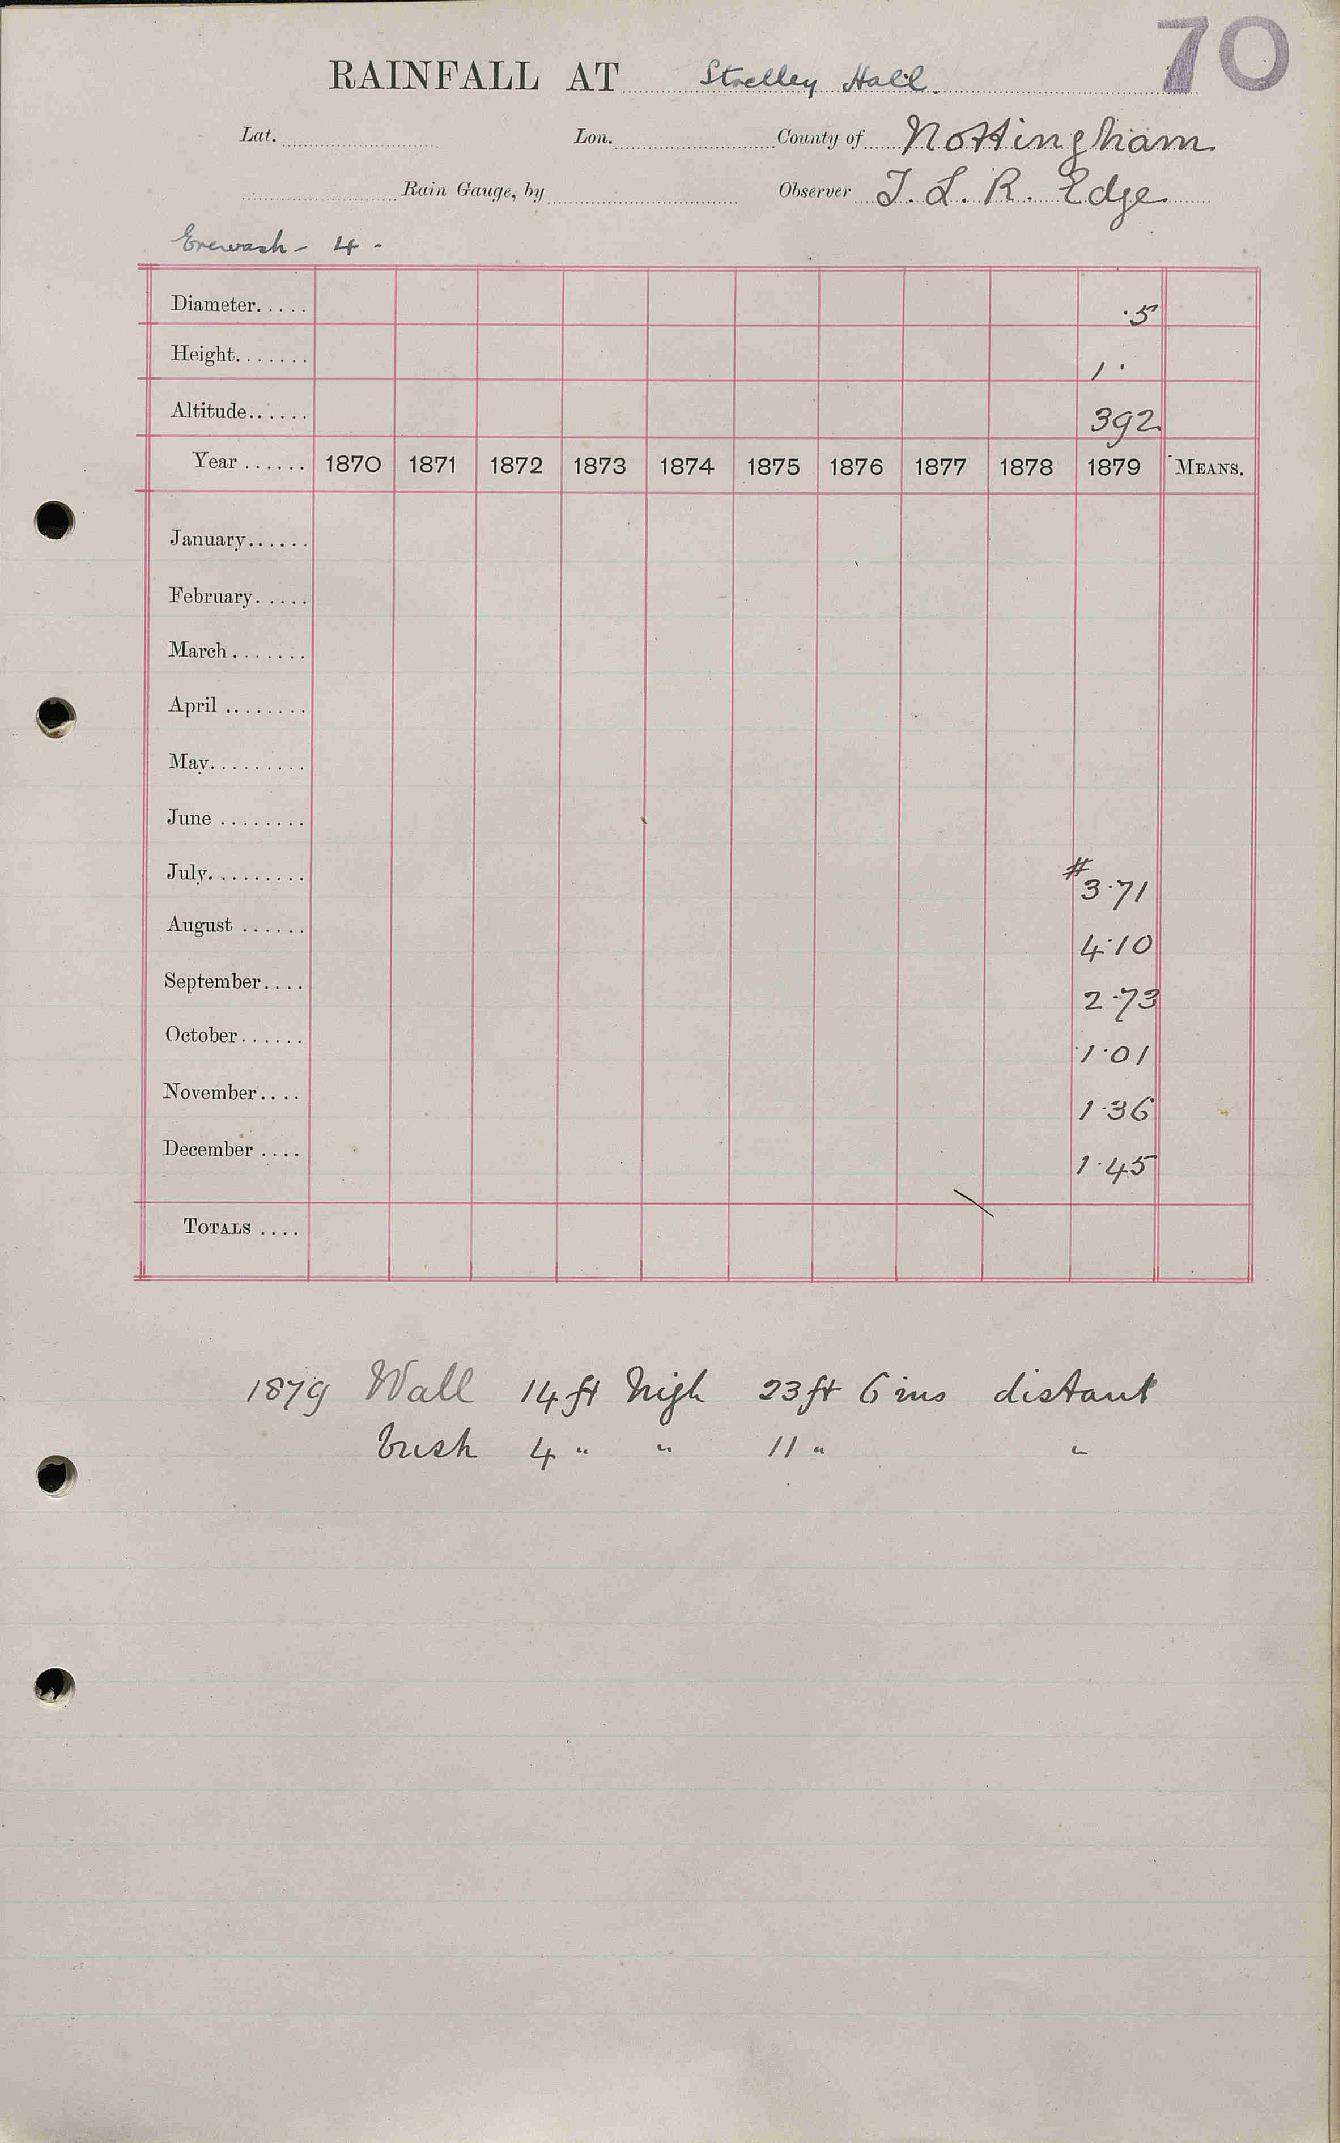 70
RAINFALL AT Strelley Hall.
Lat. Lon. County of Nottingham
Rain Gauge, by Observer T. L. R. Edge
Erewash - 4 -
Diameter..... ·5
Height....... 1 ·
Altitude...... 392
Year ...... 1870 1871 1872 1873 1874 1875 1876 1877 1878 1879 MEANS.
January......
February.....
March.......
April ........
May.........
June ........
July......... # 3·71
August ...... 4·10
September.... 2·73
October...... 1·01
November.... 1·36
December .... 1·45
TOTALS ....
1879 Wall 14 ft high 23 ft 6 ins distant
bush 4 " " 11 " "